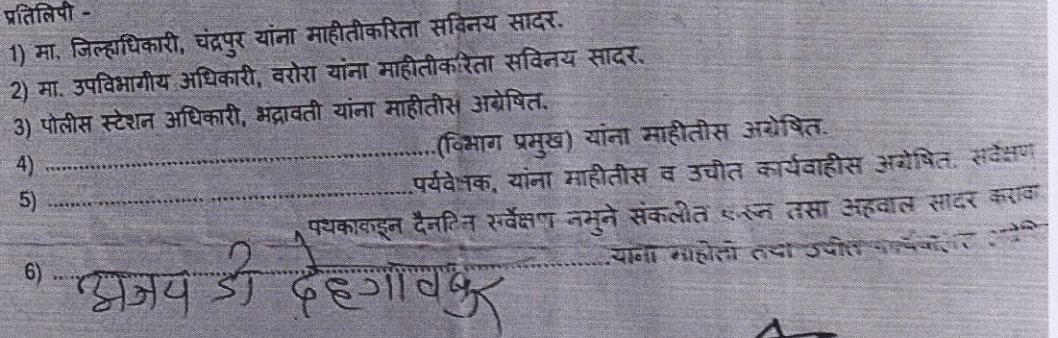 प्रतिलिपी -
1) मा. जिल्हाधिकारी, चंद्रपुर यांना माहीतीकरिता सविनय सादर.
2) मा. उपविभागीय अधिकारी, वरोरा यांना माहीतीकरिता सविनय सादर.
3) पोलीस स्टेशन अधिकारी, भद्रावती यांना माहीतीस अग्रेषित.
4) ..........................................(विभाग प्रमुख) यांना माहीतीस अग्रेषित.
5) ..........................................पर्यवेक्षक, यांना माहीतीस व उचीत कार्यवाहीस अग्रेषित. सर्वेक्षण
पथकाकडून दैनंदिन सर्वेक्षण नमुने संकलीत करून तसा अहवाल सादर करावा
6) ..........................................यांना माहीती तथा उचीत
अजय डी देहगावकर